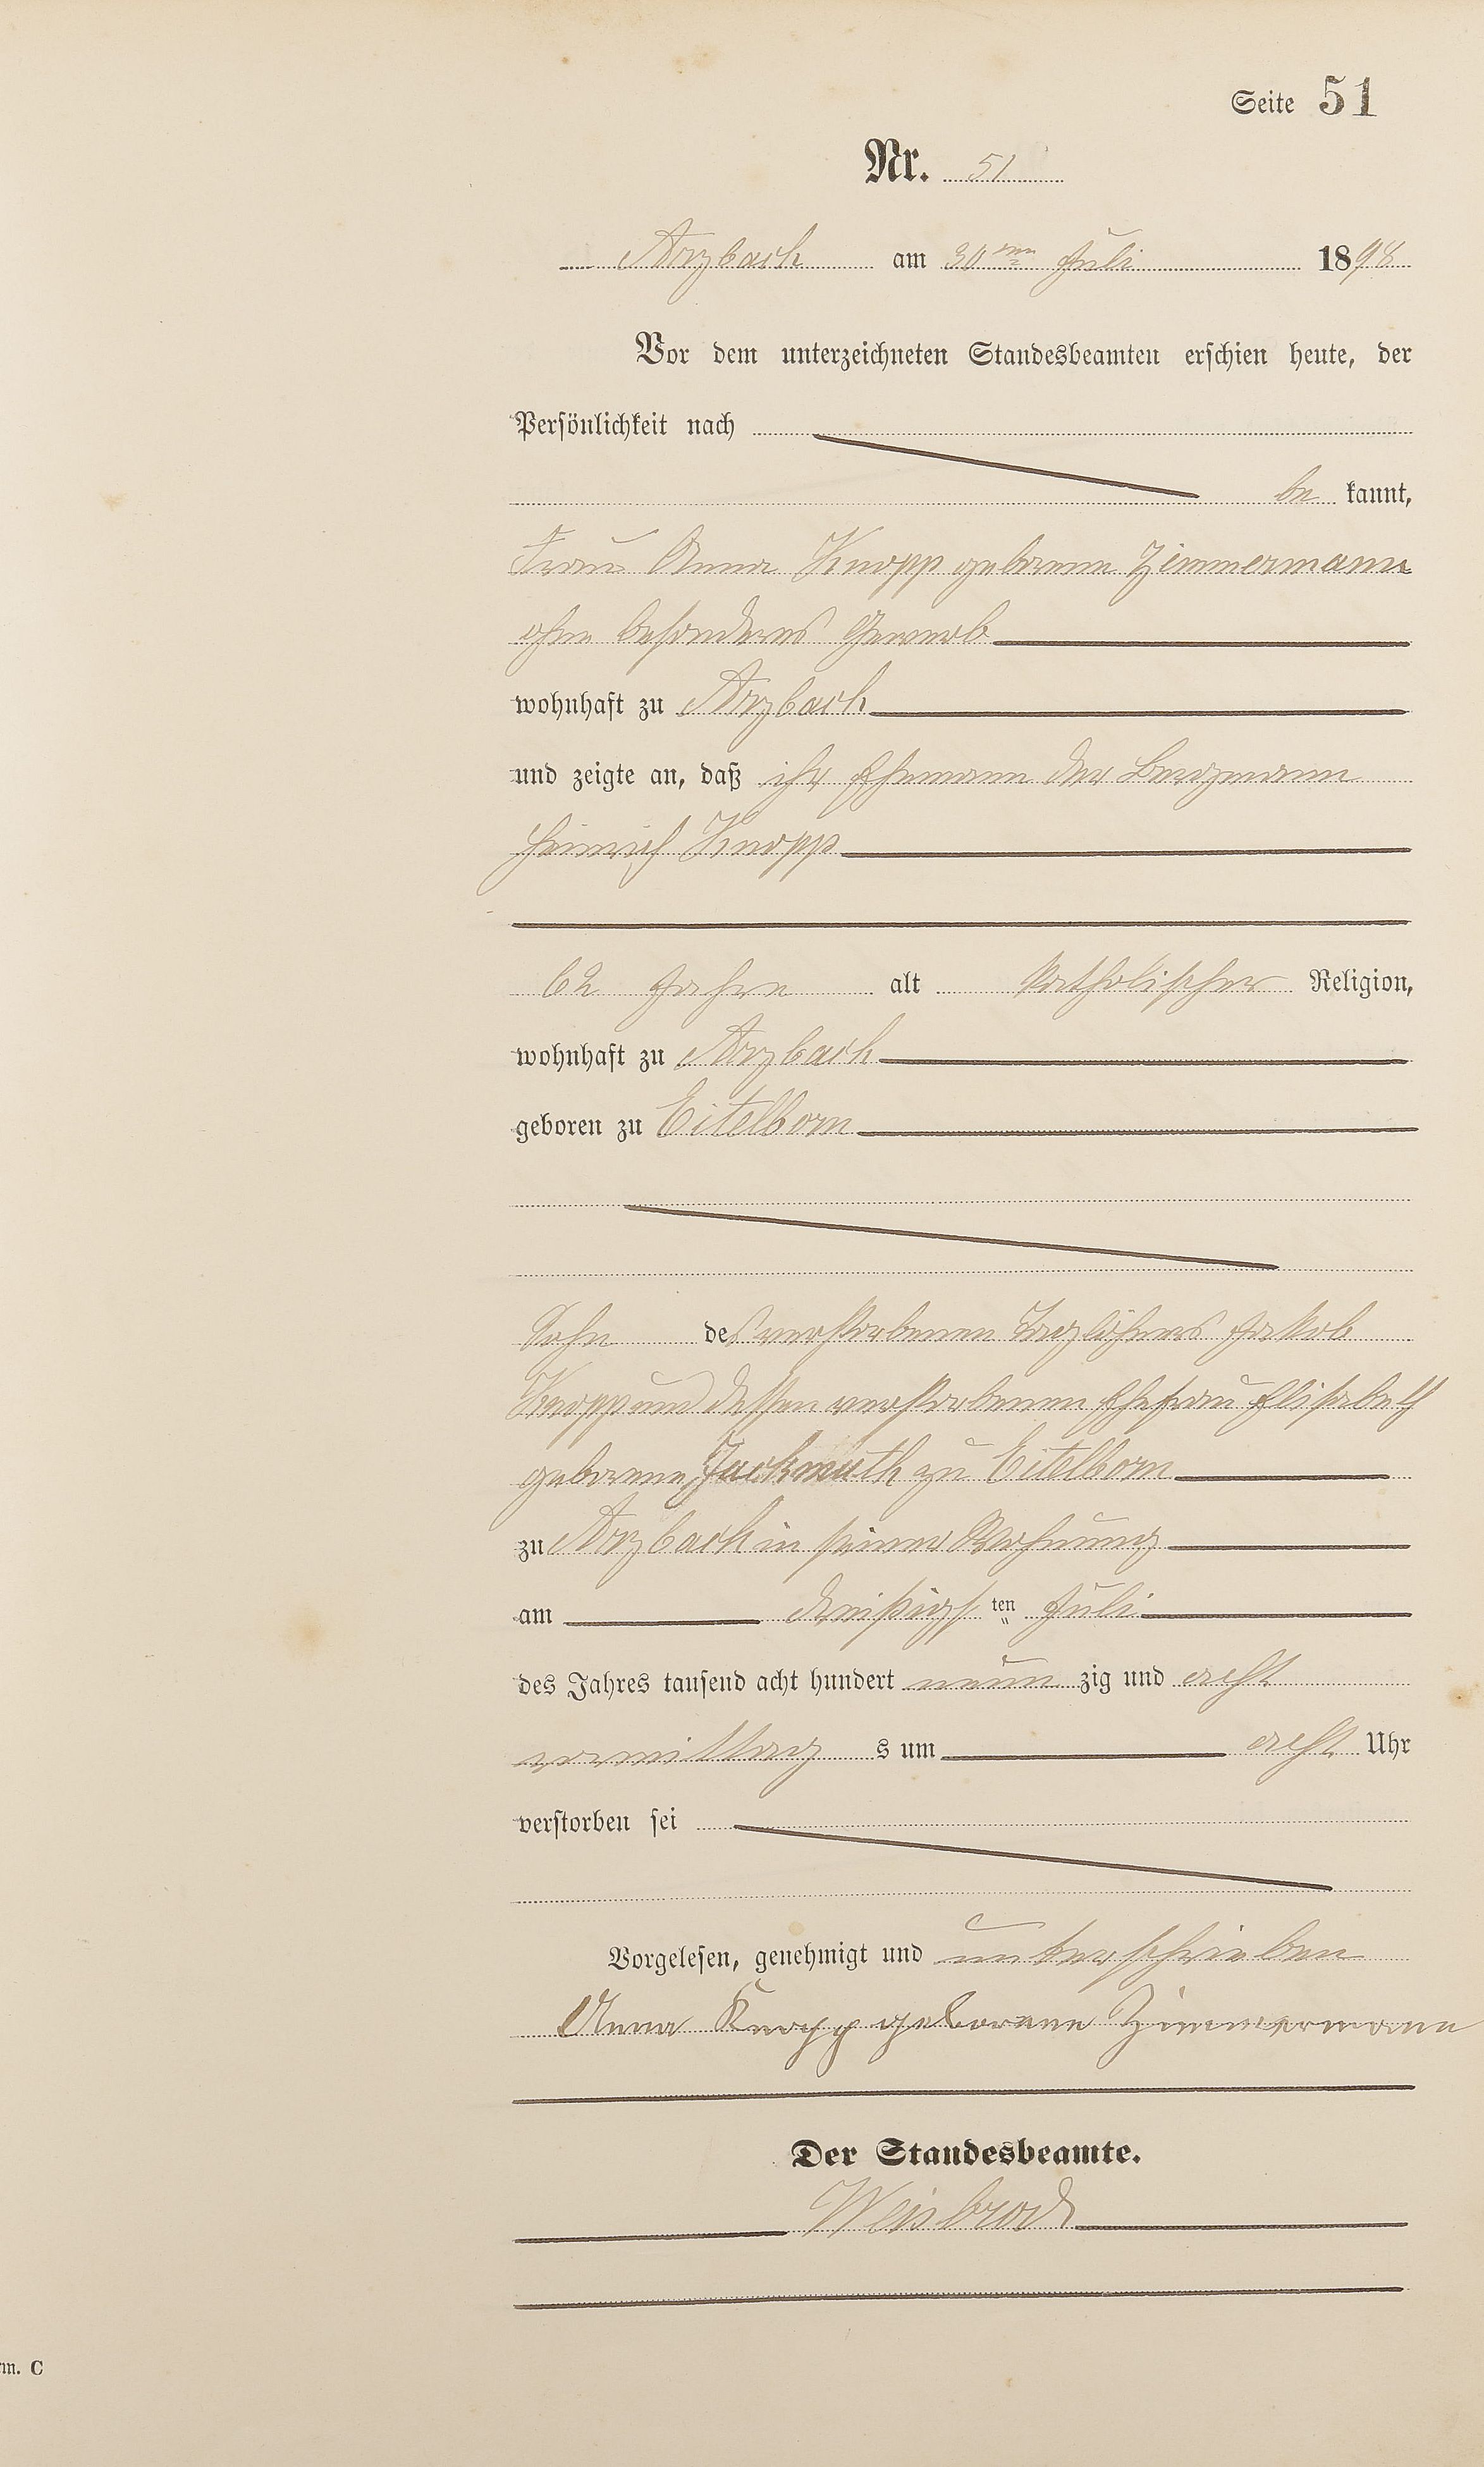 Seite 51
Nr. 51
Arzbach am 30ten Juli 1898
Vor dem unterzeichneten Standesbeamten erschien heute, der
Persönlichkeit nach
be kannt,
Frau Anna Knopp geborene Zimmermann
ohne besonderes Gewerb
wohnhaft zu Arzbach
und zeigte an, daß ihr Ehemann der Bergmann
Heinrich Knopp
62 Jahre alt katholischer Religion,
wohnhaft zu Arzbach
geboren zu Eitelborn
Sohn des verstorbenen Taglöhners Jakob
Knopp und dessen verstorbenen Ehefrau Elisabeth
geborene Jackmuth zu Eitelborn
zu Arzbach in seiner Wohnung
am dreißigs ten Juli
des Jahres tausend acht hundert neun zig und acht
vormittag s um acht Uhr
verstorben sei
Vorgelesen, genehmigt und unterschrieben
Anna Knopp geborene Zimmermann
Der Standesbeamte.
Weisbrod
m. C